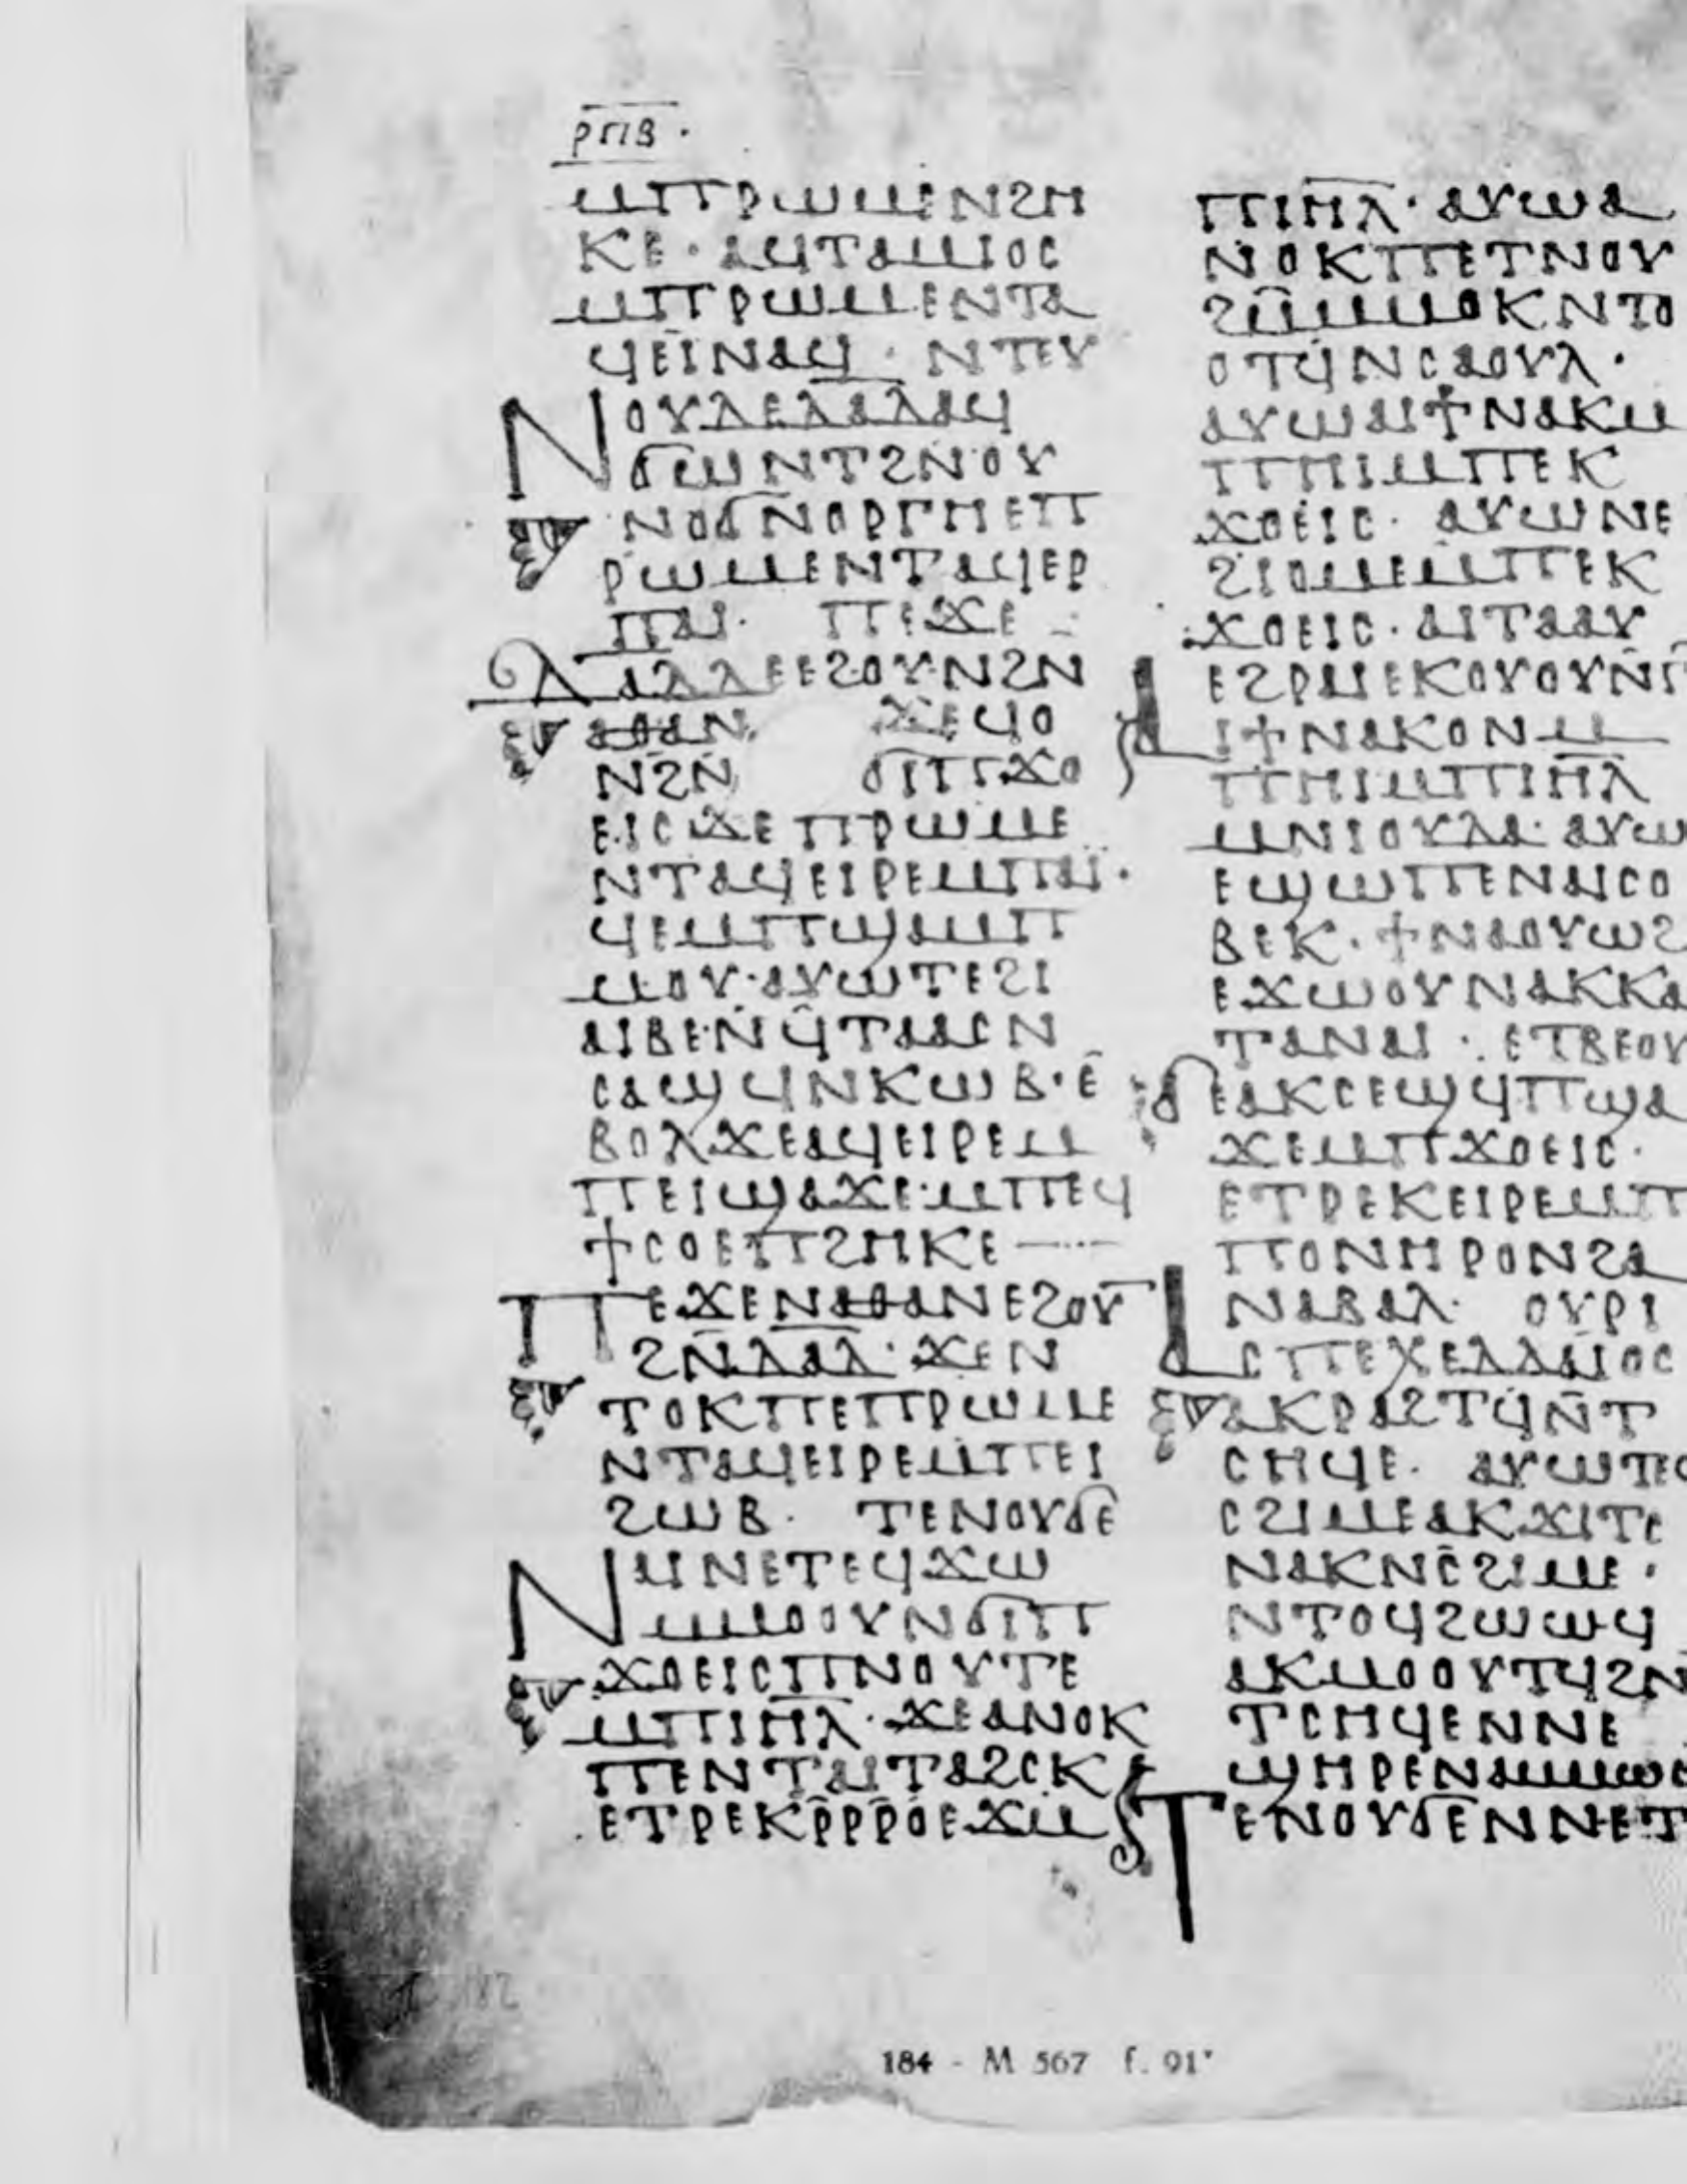 ⲣⲡⲃ·
ⲙⲡⲣⲱⲙⲉⲛϩⲏ
ⲕⲉ· ⲁϥⲧⲁⲙⲓⲟⲥ
ⲙⲡⲣⲱⲙⲉⲛⲧⲁ
ϥⲉⲓⲛⲁϥ· ⲛⲧⲉⲩ
ⲛⲟⲩⲇⲉⲁⲇⲁⲇ
ⲛϭⲱⲛⲧϩⲛⲟⲩ
ⲛⲟϭⲛⲟⲣⲅⲏⲉⲡ
ⲣⲱⲙⲉⲛⲧⲁϥⲉⲣ
ⲡⲁⲓ· ⲡⲉϫⲉ
ⲇⲁⲇⲇⲉⲉϩⲟⲩⲛϩⲛ
ⲁⲑⲁⲛ ϫⲉϥⲟ
ⲛϩⲛ ϭⲓⲡϫⲟ
ⲉⲓⲥϫⲉⲡⲣⲱⲙⲉ
ⲛⲧⲁϥⲉⲓⲣⲉⲙⲡⲁⲓ·
ϥⲉⲙⲡϣⲁⲙⲡ
ⲙⲟⲩ·ⲁⲩⲱⲧⲉϩⲓ
ⲁⲓⲃⲉ·ⲛϥⲧⲁⲁⲥⲛ
ⲥⲁϣϥⲛⲕⲱⲃ·ⲉ
ⲃⲟⲗϫⲉⲁϥⲉⲓⲣⲉⲙ
ⲡⲉⲓϣⲁϫⲉ·ⲙⲡⲉϥ
ϯⲥⲟⲉⲡϩⲏⲕⲉ
ⲡⲉϫⲉⲛⲁⲑⲁⲛⲉϩⲟⲩ
ϩⲛⲇⲁⲇ·ϫⲉⲛ
ⲧⲟⲕⲡⲉⲡⲣⲱⲙⲉ
ⲛⲧⲁϥⲉⲓⲣⲉⲙⲡⲉⲓ
ϩⲱⲃ· ⲧⲉⲛⲟⲩϭⲉ
ⲛⲁⲓⲛⲉⲧⲉϥϫⲱ
ⲙⲙⲟⲟⲩⲛϭⲓⲡ
ϫⲟⲉⲓⲥⲡⲛⲟⲩⲧⲉ
ⲙⲡⲓⲏⲗ·ϫⲉⲁⲛⲟⲕ
ⲡⲉⲛⲧⲁⲓⲧⲁϩⲥⲕ
ⲉⲧⲣⲉⲕⲣⲣⲣⲟⲉϫⲙ
ⲡⲓⲏⲗ· ⲁⲩⲱⲁ
ⲛⲟⲕⲡⲉⲧⲛⲟⲩ
ϩⲙⲙⲙⲟⲕⲛⲧⲟ
ⲟⲧϥⲛⲥⲁⲟⲩⲗ·
ⲁⲩⲱⲁⲓϯⲛⲁⲕⲙ
ⲡⲏⲓⲙⲡⲉⲕ
ϫⲟⲉⲓⲥ· ⲁⲩⲱⲛⲉ
ϩⲓⲟⲙⲉⲙⲡⲉⲕ
ϫⲟⲉⲓⲥ·ⲁⲓⲧⲁⲁⲩ
ⲉϩⲣⲁⲓⲉⲕⲟⲩⲟⲩⲛⲅ
ⲁⲓϯⲛⲁⲕⲟⲛⲙ
ⲡⲏⲓⲙⲡⲓⲏⲗ
ⲙⲛⲓⲟⲩⲇⲁ·ⲁⲩⲱ
ⲉϣⲱⲡⲉⲛⲁⲓⲥⲟ
ⲃⲉⲕ·ϯⲛⲁⲟⲩⲱϩ
ⲉϫⲱⲟⲩⲛⲁⲕⲕⲁ
ⲧⲁⲛⲁⲓ· ⲉⲧⲃⲉⲟⲩ
ϭⲉⲁⲕⲥⲉϣϥⲡϣⲁ
ϫⲉⲙⲡϫⲟⲉⲓⲥ·
ⲉⲧⲣⲉⲕⲉⲓⲣⲉⲙⲡ
ⲡⲟⲛⲏⲣⲟⲛϩⲁ
ⲛⲁⲃⲁⲗ· ⲟⲩⲣⲓ
ⲁⲥⲡⲉⲭⲉⲇⲇⲁⲓⲟⲥ
ⲁⲕⲣⲁϩⲧϥⲛⲧ
ⲥⲏϥⲉ· ⲁⲩⲱⲧⲉϥ
ⲥϩⲓⲙⲉⲁⲕϫⲓⲧⲥ
ⲛⲁⲕⲛⲥϩⲓⲙⲉ·
ⲛⲧⲟϥϩⲱⲱϥ
ⲁⲕⲙⲟⲟⲩⲧϥϩⲛ
ⲧⲥⲏϥⲉⲛⲛⲉ
ϣⲏⲣⲉⲛⲁⲙⲙⲱ
ⲧⲉⲛⲟⲩϭⲉⲛⲛⲉⲧ
184 - M 567 f. 91ᵛ